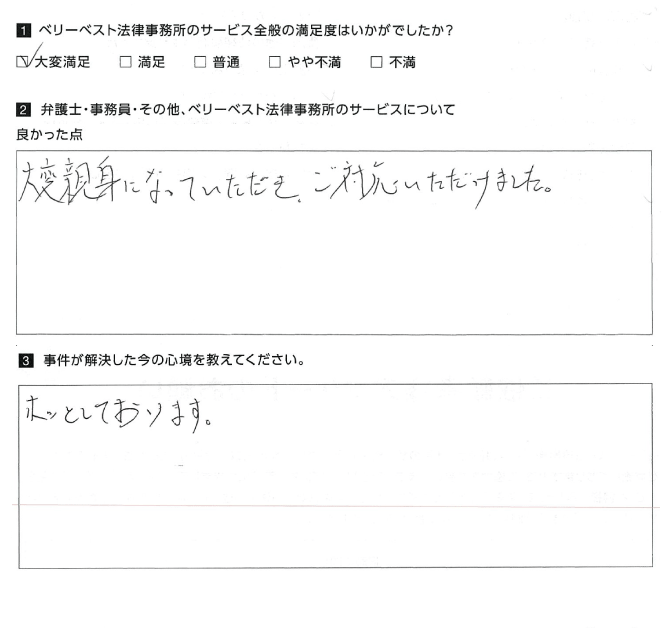 1 ベリーベスト法律事務所のサービス全般の満足度はいかがでしたか？
☑大変満足 □満足 □普通 □やや不満 □不満
2 弁護士・事務員・その他、ベリーベスト法律事務所のサービスについて
良かった点
大変親身になっていただき、ご対応いただけました。
3 事件が解決した今の心境を教えてください。
ホッとしております。